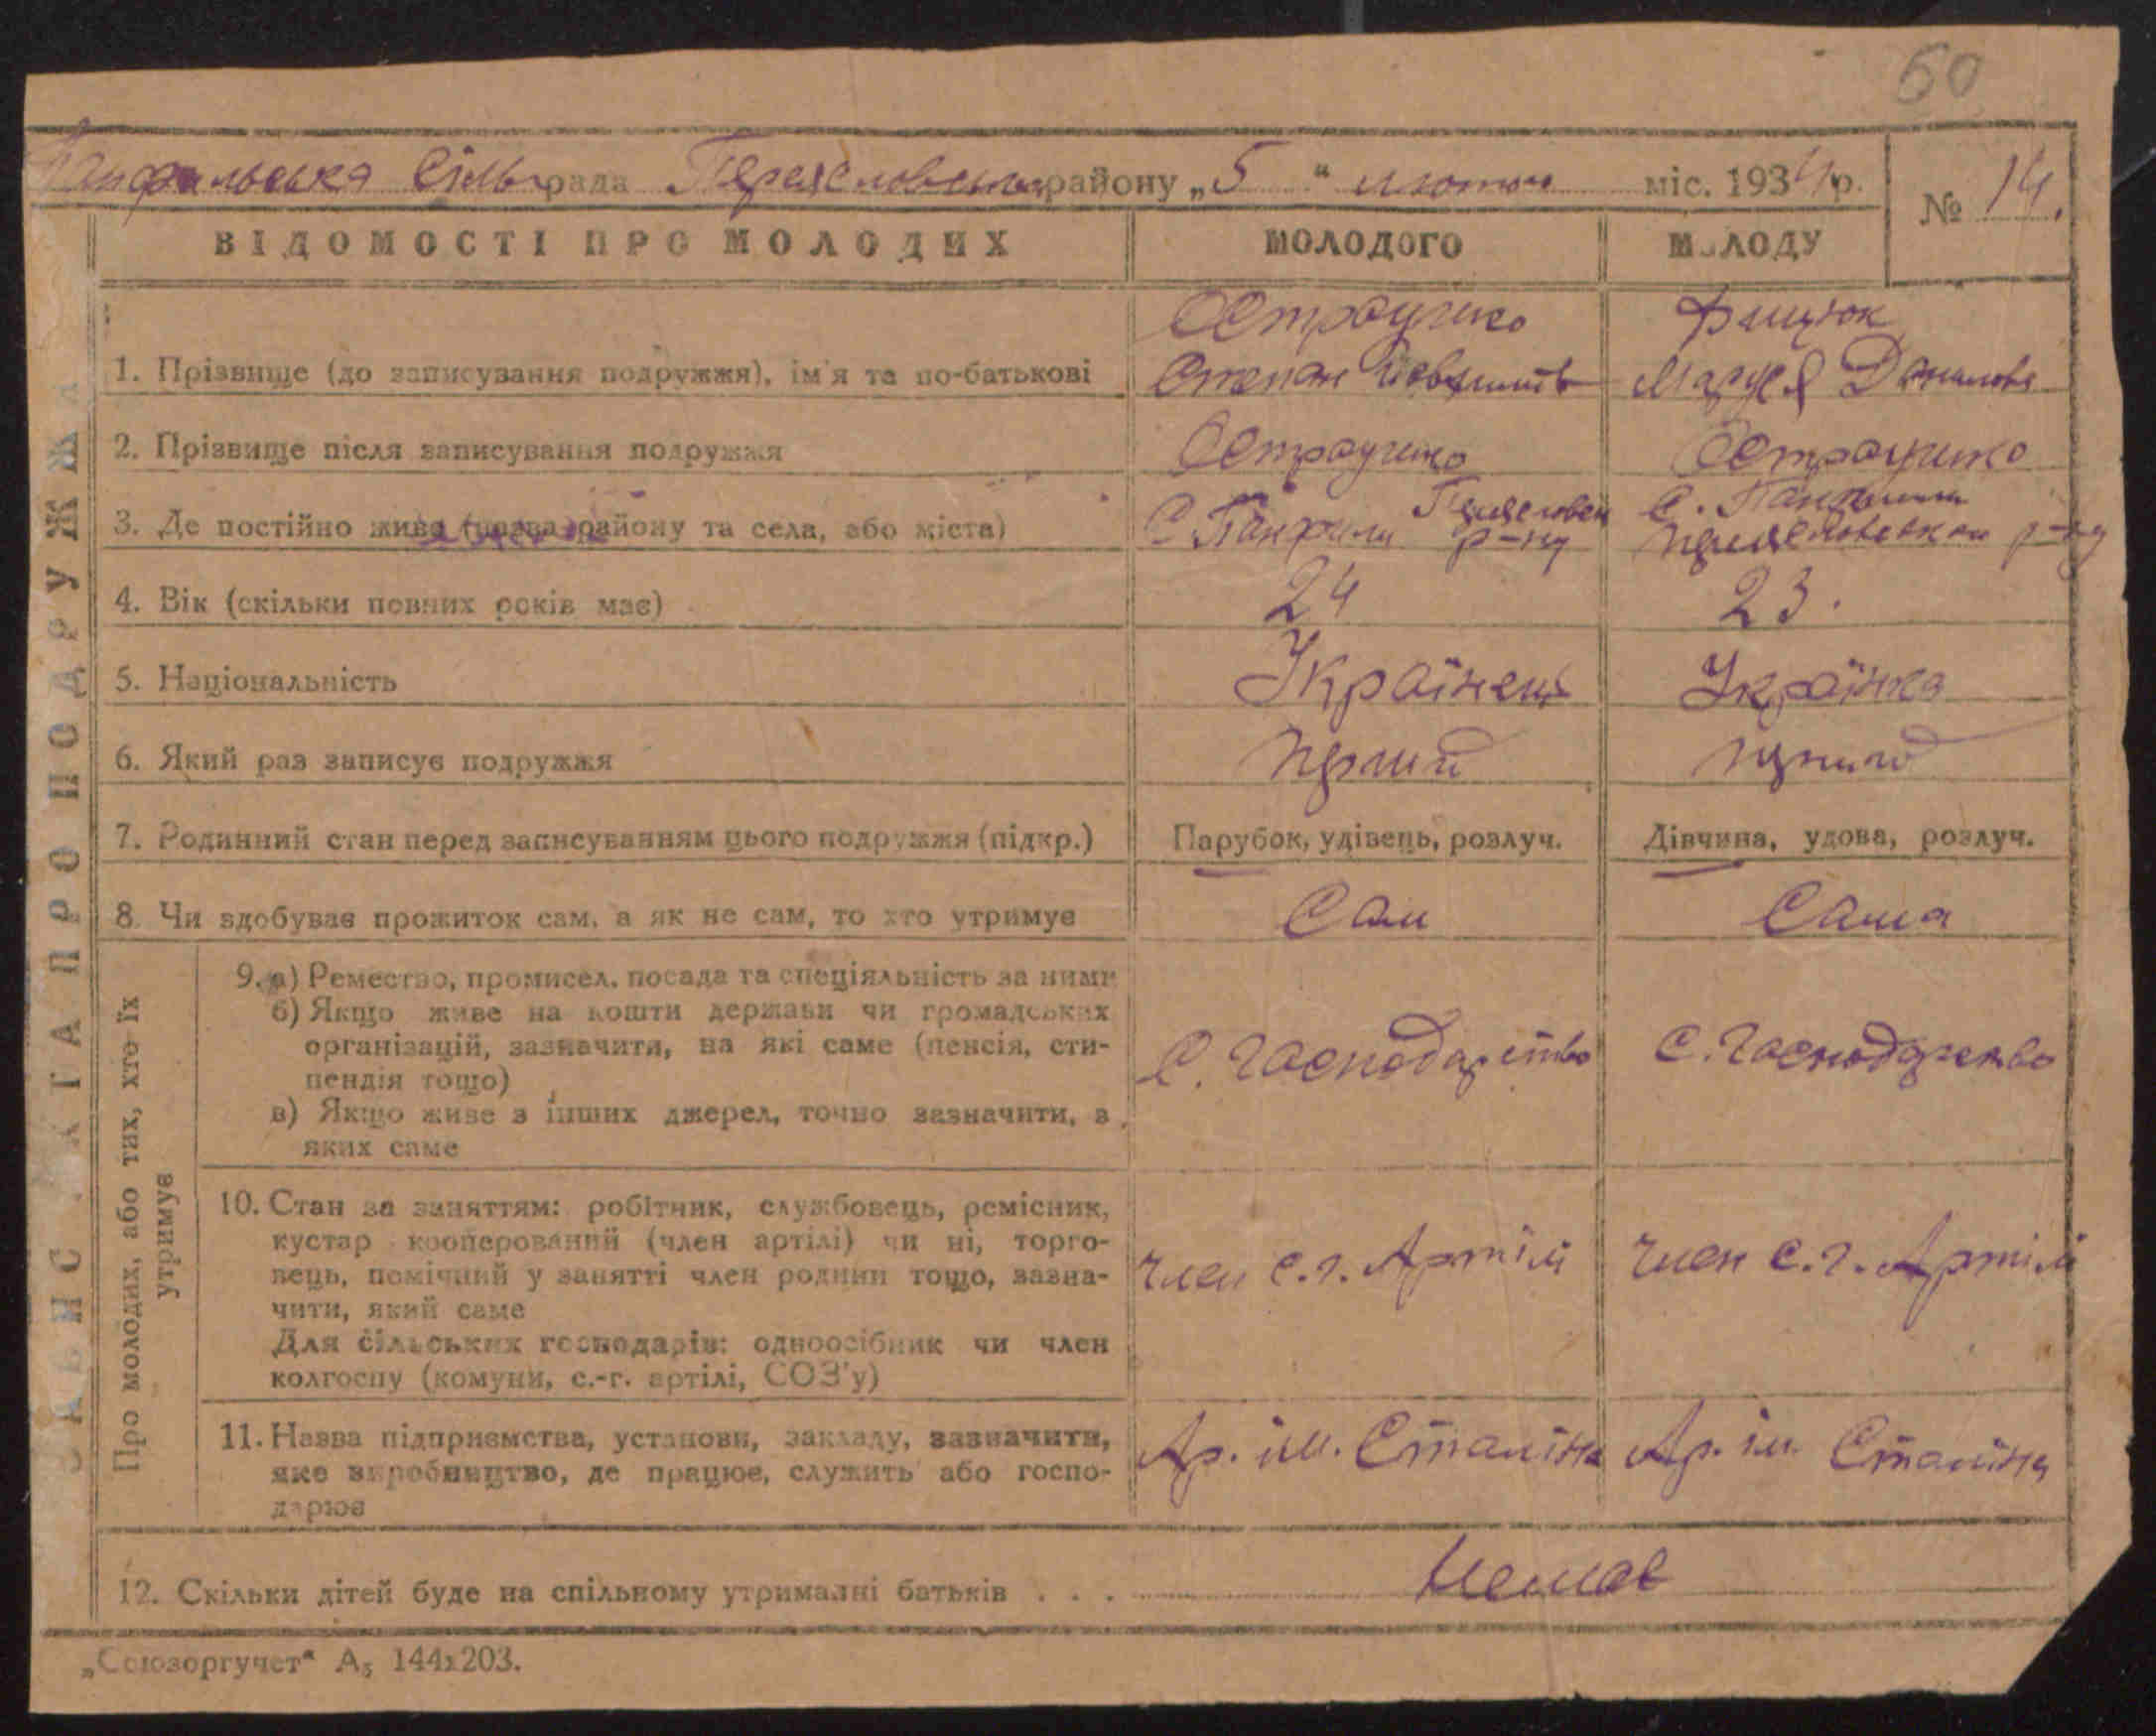 50
Панфильська Сільрада Переяславського району „5“ лютого міс. 1934 р.
№ 14.
ВІДОМОСТІ ПРО МОЛОДИХ МОЛОДОГО МОЛОДУ
1. Прізвище (до записування подружжя), ім'я та по-батькові
Степан
Маруся Данилов
2. Прізвище після записування подружжя
3. Де постійно живе (назва району та села, або міста)
С. Панфили р-ну
с. Панфили р-ну
4. Вік (скільки повних років має) 24 23.
5. Національність Українець Українка
6. Який раз записує подружжя перший
7. Родинний стан перед записуванням цього подружжя (підкр.) Парубок, удівець, розлуч. Дівчина, удова, розлуч.
8. Чи здобуває прожиток сам, а як не сам, то хто утримує Сам Сама
Про молодих, або тих, хто їх утримує
9. а) Ремество, промисел, посада та спеціяльність за ними
б) Якщо живе на кошти держави чи громадських
організацій, зазначити, на які саме (пенсія, сти-
пендія тощо)
С. Господарство С. Господарство
в) Якщо живе з інших джерел, точно зазначити, з
яких саме
10. Стан за заняттям: робітник, службовець, ремісник,
кустар кооперований (член артілі) чи ні, торго-
вець, помічний у занятті член родини тощо, зазна-
чити, який саме
член с.г. Артілі член с.г. Артілі
Для сільських господарів: одноосібник чи член
колгоспу (комуни, с.-г. артілі, СОЗ'у)
11. Назва підприємства, установи, закладу, зазначити,
яке виробництво, де працює, служить або госпо-
дарює
Ар. ім. Сталіна Ар. ім. Сталіна
12. Скільки дітей буде на спільному утриманні батьків . . . Немає
„Союзоргучет“ А₅ 144х203.
ЗАПИС АКТА ПРО ПОДРУЖЖЯ